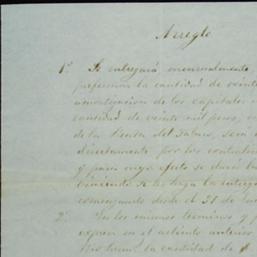 Arreglo
1º Se entregará mensualmente,
preferencia la cantidad de veinte
amortizacion de los capitales
cantidad de veinte mil pesos,
de la Renta del Tabaco, será
directamente por los contratis
y para cuyo efecto se dará
se les haga la entrega
comenzando desde el 31 de
2º En los mismos terminos y p
expresa en el artículo anterior
la cantidad de $